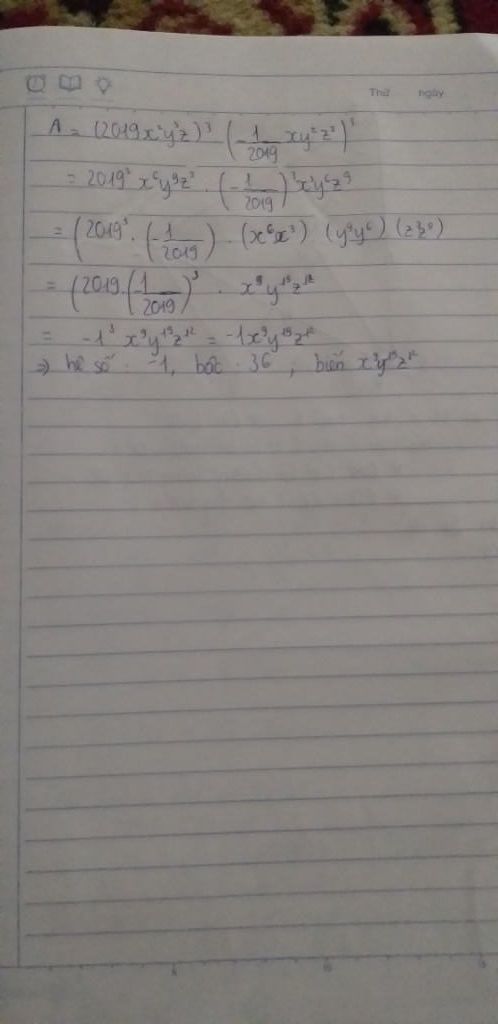 Thứ ngày
A = (2019x²y³z)³ (-1/2019 xy²z³)³
= 2019³ x⁶y⁹z³ . (-1/2019)³x³y⁶z⁹
= (2019³ . (-1/2019) . (x⁶x³) (y⁹y⁶) (z³z⁹)
= (2019.(-1/2019)³ . x⁹y¹⁵z¹²
= -1³ x⁹y¹⁵z¹² = -1x⁹y¹⁵z¹²
=> hệ số : -1, bậc : 36, biến x⁹y¹⁵z¹²
5 10 15